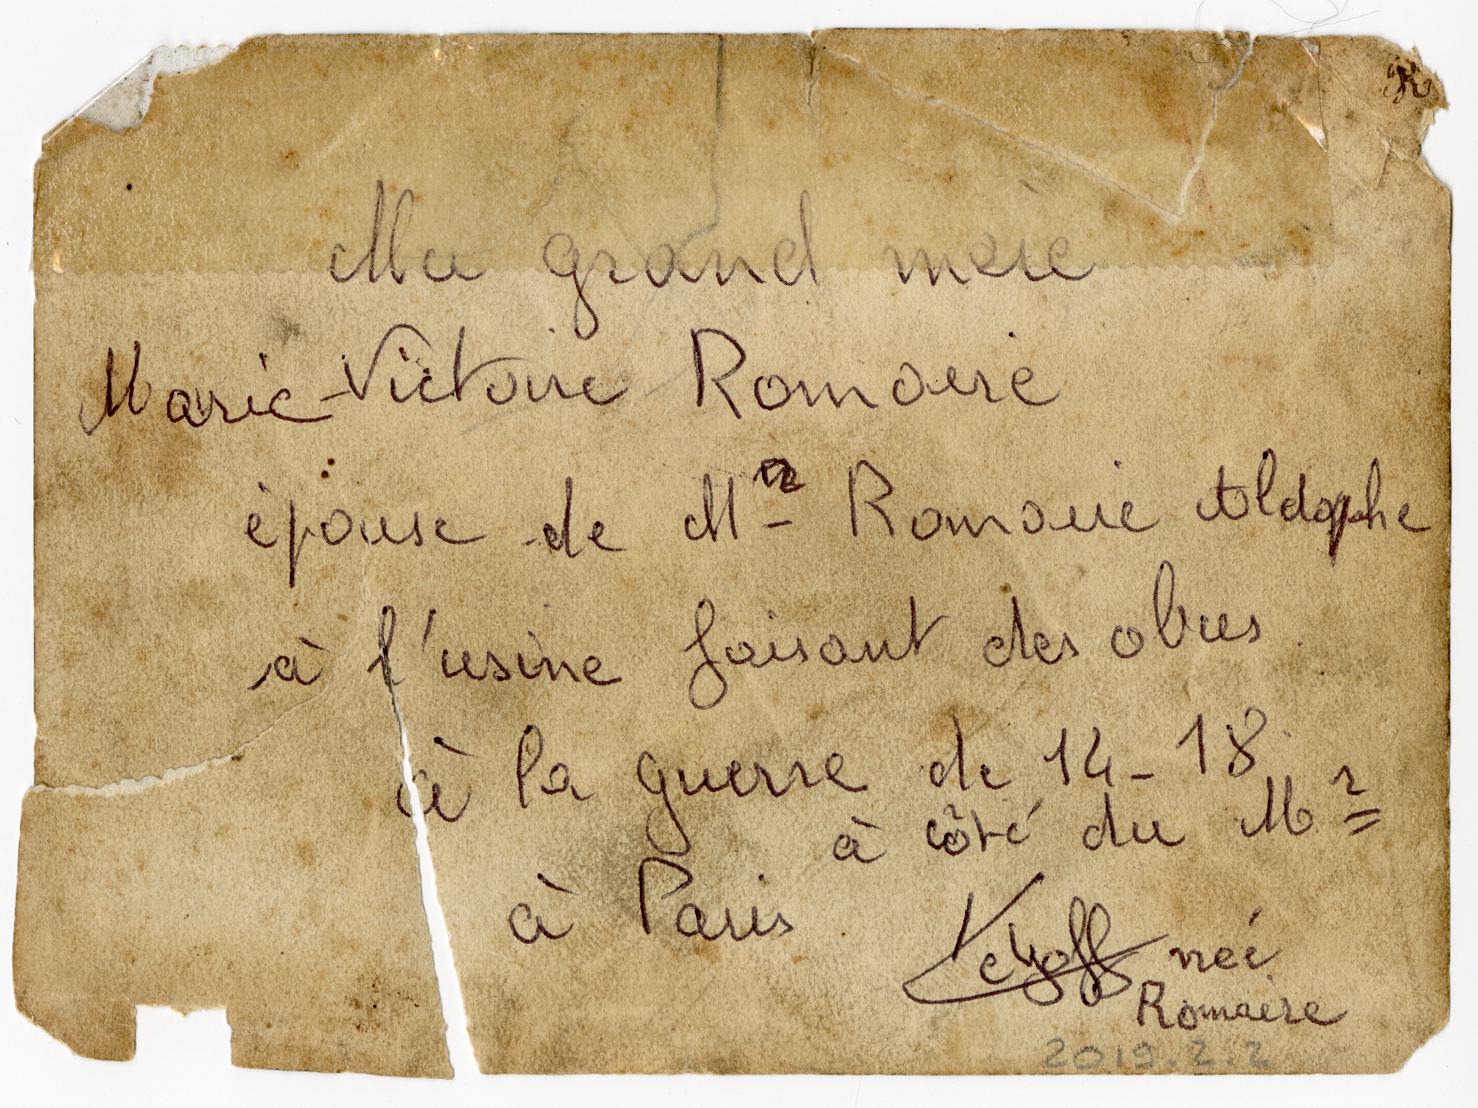 Ma grand mère
Marie-Victoire Romaire
épouse de Mr Romaire Aldophe
à l'usine faisant des obus
à la guerre de 14-18.
à côté du Mr
à Paris
née
Romaire
2019.2.2